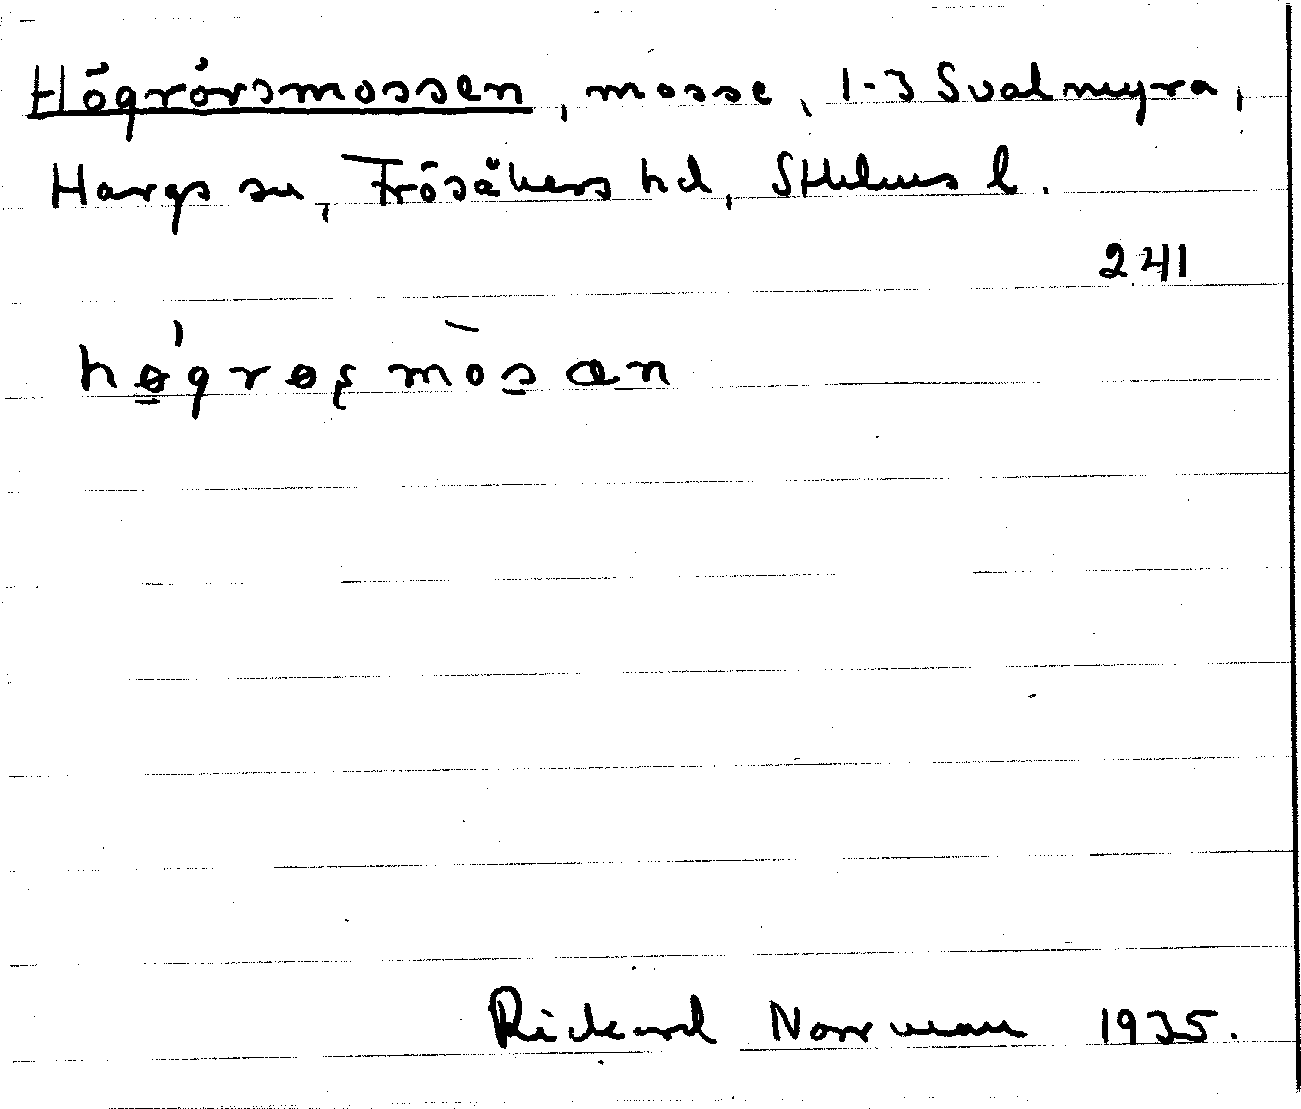 Högrörsmossen, mosse, 1-3 Svalmyra,
Hargs sn, Frösåkers hd, Sthlms l.
241
hǿ̱grøʂmòs̱an
Rickard Norrman 1935.